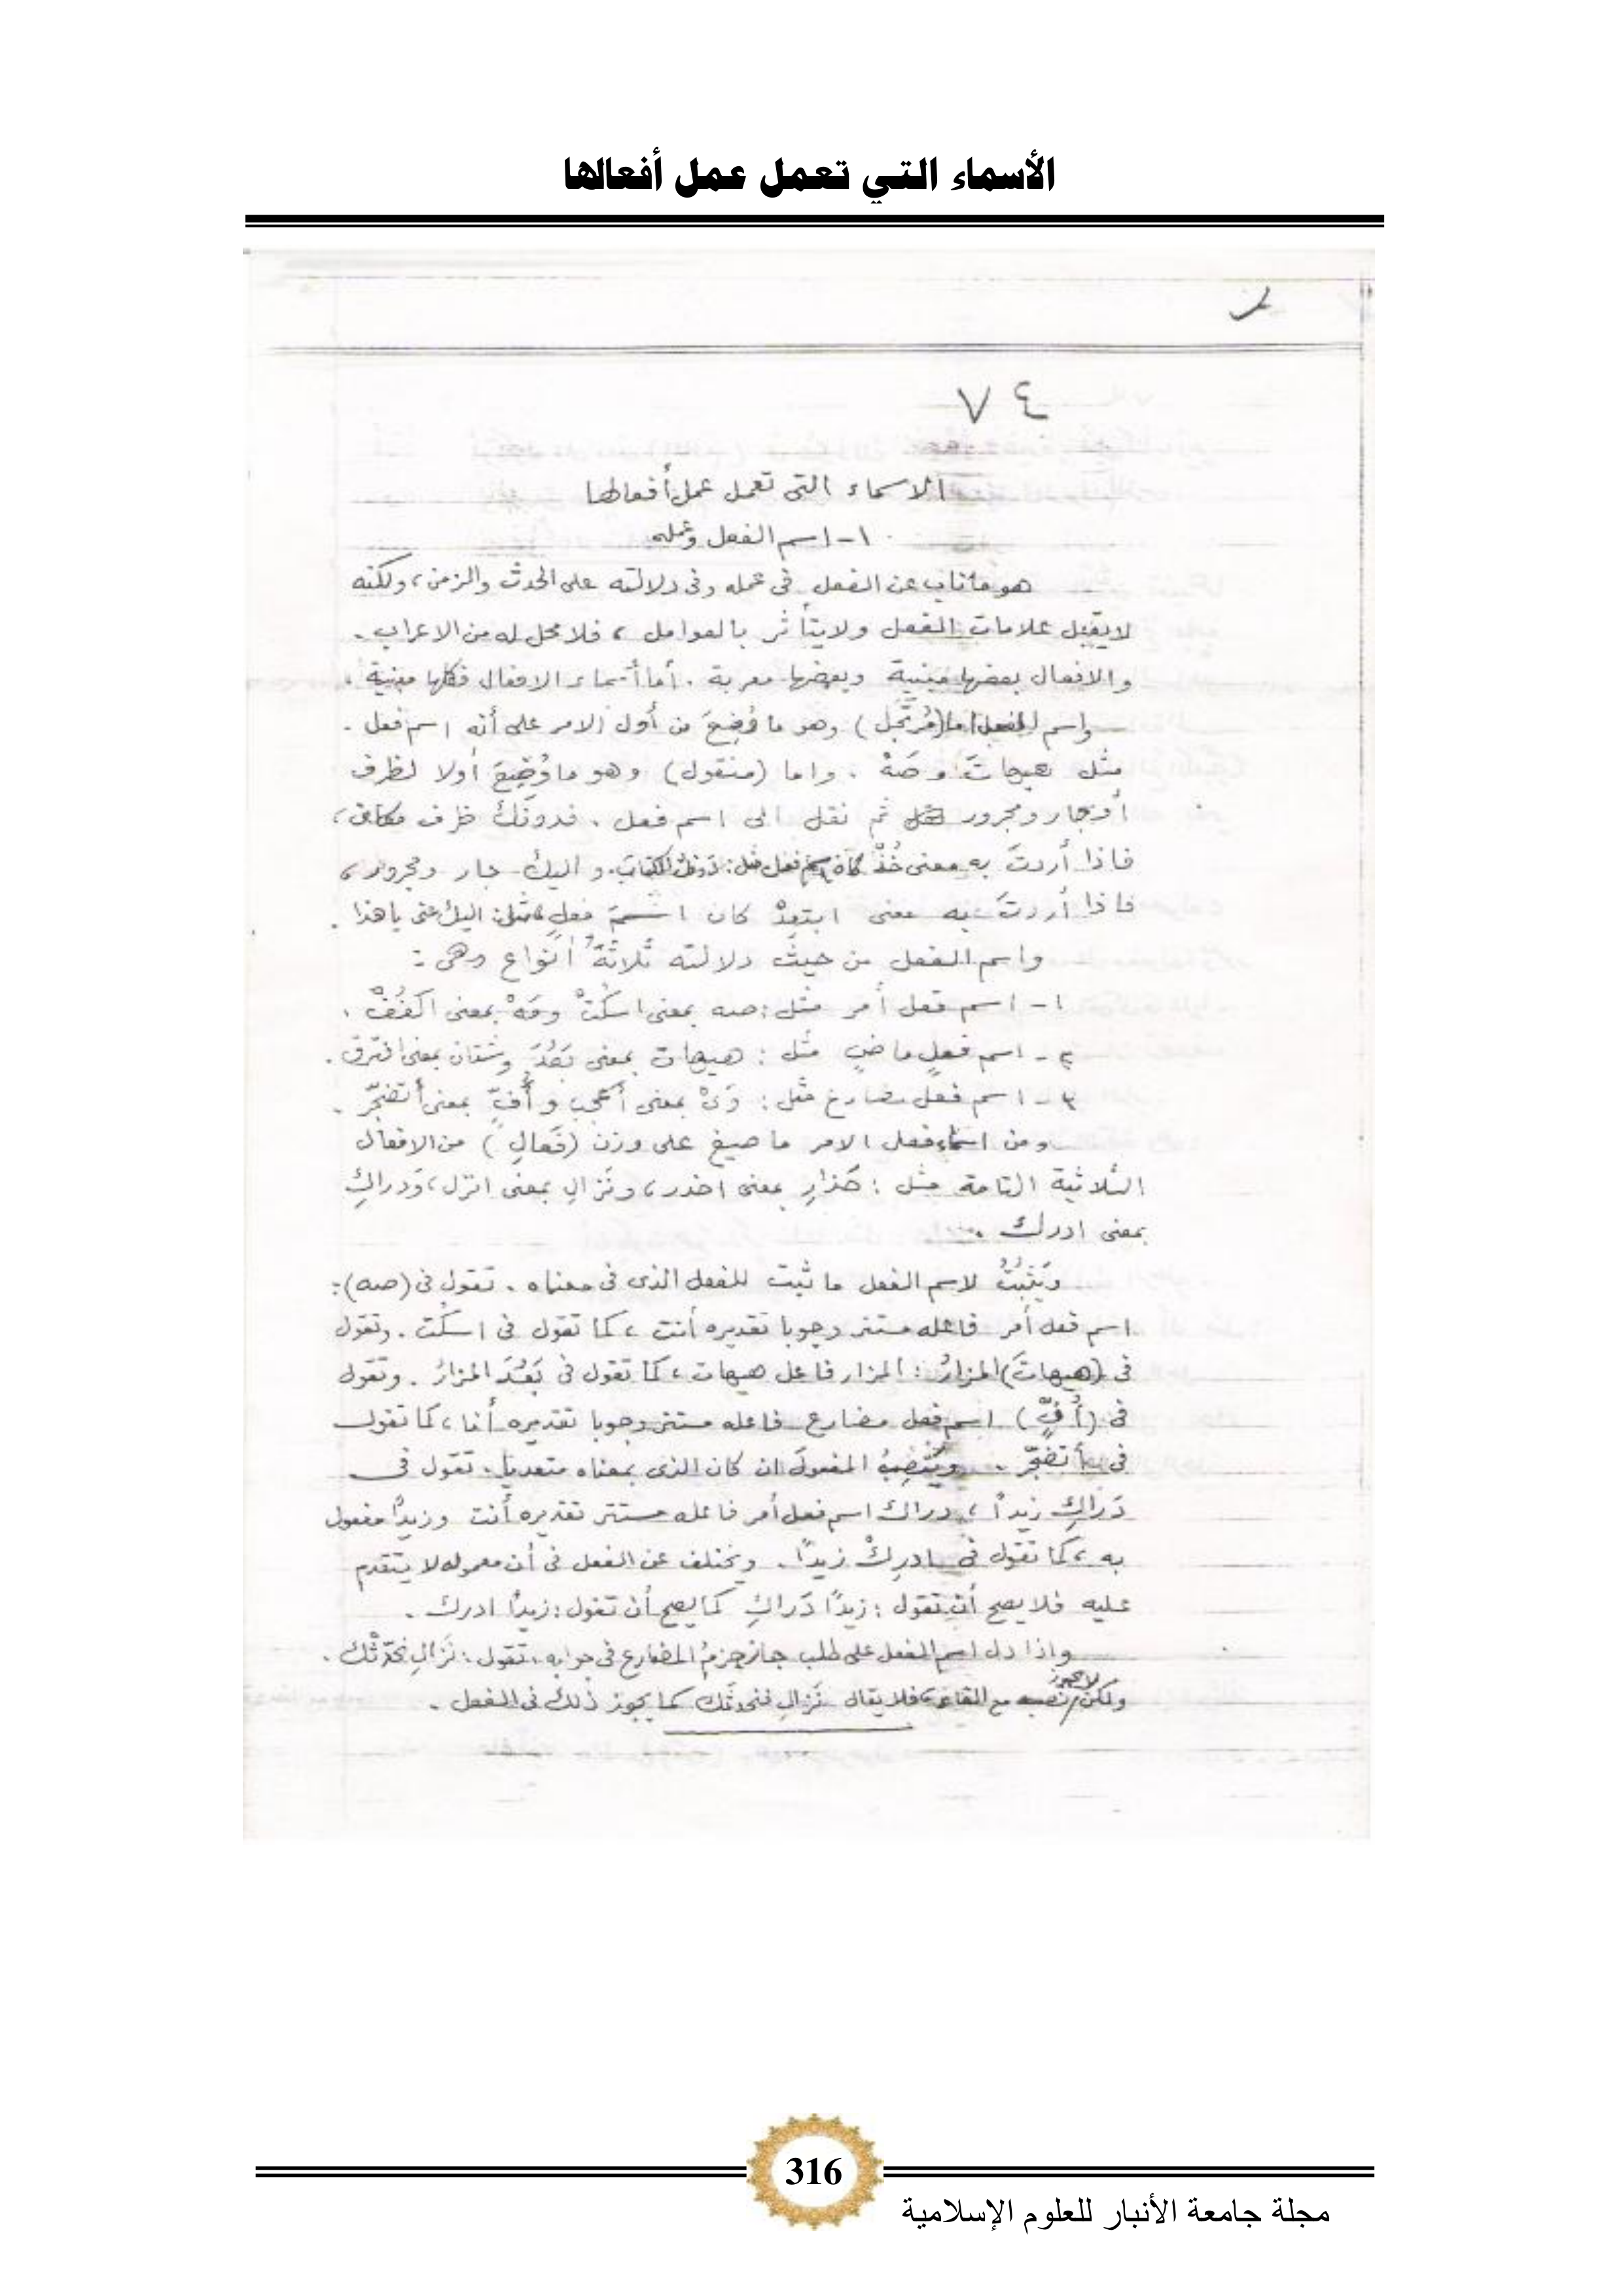 الأسماء التي تعمل عمل أفعالها
٧٤
الاسماء التى تعمل عمل أفعالها
١- اسم الفعل وعمله
هو ما ناب عن الفعل فى عمله وفى دلالته على الحدث والزمن، ولكنه
لا يقبل علامات الفعل ولا يتأثر بالعوامل، فلا محل له من الاعراب.
والافعال بعضها مبنية وبعضها معربة. أما أسماء الافعال فكلها مبنية.
واسم الفعل اما (مُرتَجَل) وهو ما وُضِعَ من أول الامر على أنه اسم فعل.
مثل هيهاتَ وصَهْ. واما (منقول) وهو ما وُضِعَ أولا لظرف
أو جار ومجرور ثم نقل الى اسم فعل. فدونَكَ ظرف مكان،
فاذا أردتَ به معنى خُذْ كان اسم فعل مثل: دونك الكتابَ. و اليك جار ومجرور،
فاذا أردتَ به معنى ابتعِدْ كان اسمَ فعلٍ مثل: اليك عنى يا هذا.
واسم الفعل من حيثُ دلالته ثلاثةُ أنواع وهى:
١- اسم فعل أمر مثل: صه بمعنى اسكُتْ ومَهْ بمعنى اكفُفْ.
٢- اسم فعلٍ ماضٍ مثل: هيهات بمعنى بَعُدَ وشتان بمعنى افترق.
٣- اسم فعل مضارع مثل: وَىْ بمعنى أعجب و أُفٍّ بمعنى أتضجّر.
ومن اسماء فعل الامر ما صيغ على وزن (فَعالِ) من الافعال
الثلاثية التامة مثل: حَذارِ بمعنى احذر، ونَزالِ بمعنى انزل، ودَراكِ
بمعنى ادرك.
ويَثبُتُ لاسم الفعل ما ثبت للفعل الذى فى معناه. تقول فى (صه):
اسم فعل أمر فاعله مستتر وجوبا تقديره أنت، كما تقول فى اسكُت. وتقول
فى (هيهاتَ) المزارُ: المزار فاعل هيهات، كما تقول فى بَعُدَ المزارُ. وتقول
فى (أُفٍّ) اسم فعل مضارع فاعله مستتر وجوبا تقديره أنا، كما تقول
فى أتضجّر. ويَنصِبُ المفعولَ ان كان الذى بمعناه متعديا. تقول فى
دَراكِ زيداً، دراك اسم فعل أمر فاعله مستتر تقديره أنت وزيدًا مفعول
به، كما تقول فى ادرِكْ زيدًا. ويختلف عن الفعل فى أن معموله لا يتقدم
عليه فلا يصح أن تقول: زيدًا دَراكِ كما يصح أن تقول: زيدًا ادرك.
واذا دل اسم الفعل على طلب جاز جزمُ المضارع فى جوابه، تقول: نَزالِ نحدّثْك.
ولكن لا يجوز نصبه مع الفاء، فلا يقال نَزالِ فنحدثَك كما يجوز ذلك فى الفعل.
316
مجلة جامعة الأنبار للعلوم الإسلامية